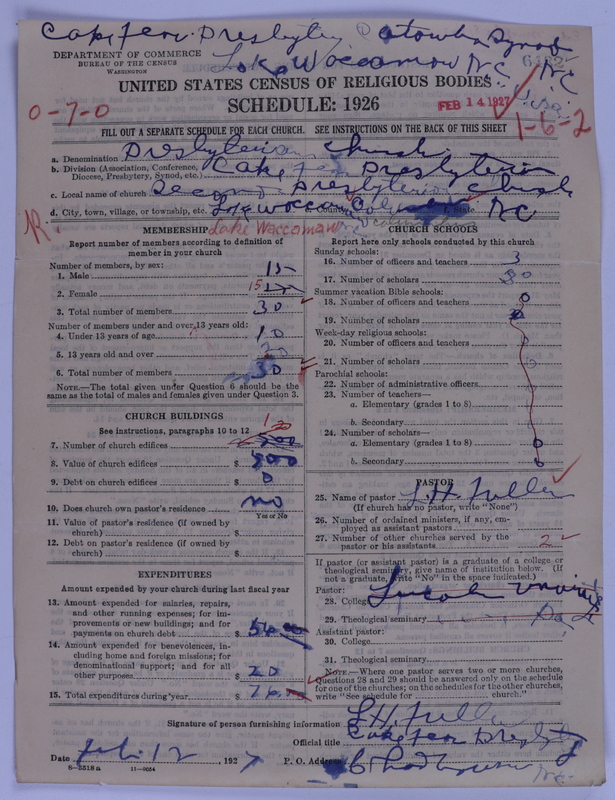 Cape Fear Presbytery Catawba Synod
DEPARTMENT OF COMMERCE
BUREAU OF THE CENSUS
WASHINGTON
Lake Waccamaw N.C. N.C
UNITED STATES CENSUS OF RELIGIOUS BODIES
SCHEDULE: 1926
FEB 14 1927
0-7-0
1-6-2
FILL OUT A SEPARATE SCHEDULE FOR EACH CHURCH. SEE INSTRUCTIONS ON THE BACK OF THIS SHEET
a. Denomination Presbyterian Church
b. Division (Association, Conference, Diocese, Presbytery, Synod, etc.) Cape Fear Presbyterian
c. Local name of church Second Presbyterian Church
d. City, town, village, or township, etc. Lake Waccamaw e. County Columbus f. State NC
Lake Waccamaw
MEMBERSHIP
Report number of members according to definition of
member in your church
Number of members, by sex:
1. Male 15
2. Female 15
3. Total number of members 30
Number of members under and over 13 years old:
4. Under 13 years of age 10
5. 13 years old and over 20
6. Total number of members 30
NOTE.—The total given under Question 6 should be
the same as the total of males and females given under Question 3.
CHURCH BUILDINGS
See instructions, paragraphs 10 to 12
7. Number of church edifices 1
8. Value of church edifices $ 500
9. Debt on church edifices $ 0
10. Does church own pastor's residence no
Yes or No
11. Value of pastor's residence (if owned by
church) $
12. Debt on pastor's residence (if owned by
church) $
EXPENDITURES
Amount expended by your church during last fiscal year
13. Amount expended for salaries, repairs,
and other running expenses; for im-
provements or new buildings; and for
payments on church debt $ 56
14. Amount expended for benevolences, in-
cluding home and foreign missions; for
denominational support; and for all
other purposes $ 20
15. Total expenditures during year $ 76
CHURCH SCHOOLS
Report here only schools conducted by this church
Sunday schools:
16. Number of officers and teachers 3
17. Number of scholars 30
Summer vacation Bible schools:
18. Number of officers and teachers 0
19. Number of scholars
Week-day religious schools:
20. Number of officers and teachers 0
21. Number of scholars 0
Parochial schools:
22. Number of administrative officers
23. Number of teachers—
a. Elementary (grades 1 to 8)
b. Secondary
24. Number of scholars—
a. Elementary (grades 1 to 8) 0
b. Secondary 0
PASTOR
25. Name of pastor L. H. Fuller
(If church has no pastor, write "None")
26. Number of ordained ministers, if any, em-
ployed as assistant pastors
27. Number of other churches served by the
pastor or his assistants 2
If pastor (or assistant pastor) is a graduate of a college or
theological seminary, give name of institution below. (If
not a graduate, write "No" in the space indicated.)
Pastor:
28. College Lincoln University
29. Theological seminary Pa
Assistant pastor:
30. College
31. Theological seminary
NOTE.—Where one pastor serves two or more churches,
Questions 28 and 29 should be answered only on the schedule
for one of the churches; on the schedules for the other churches,
write "See schedule for church."
Signature of person furnishing information L. H. Fuller
Official title Cape Fear Presbytery
Date Feb. 12, 1927 P. O. Address Chadbourn N.C.
8—5518 a 11—9054